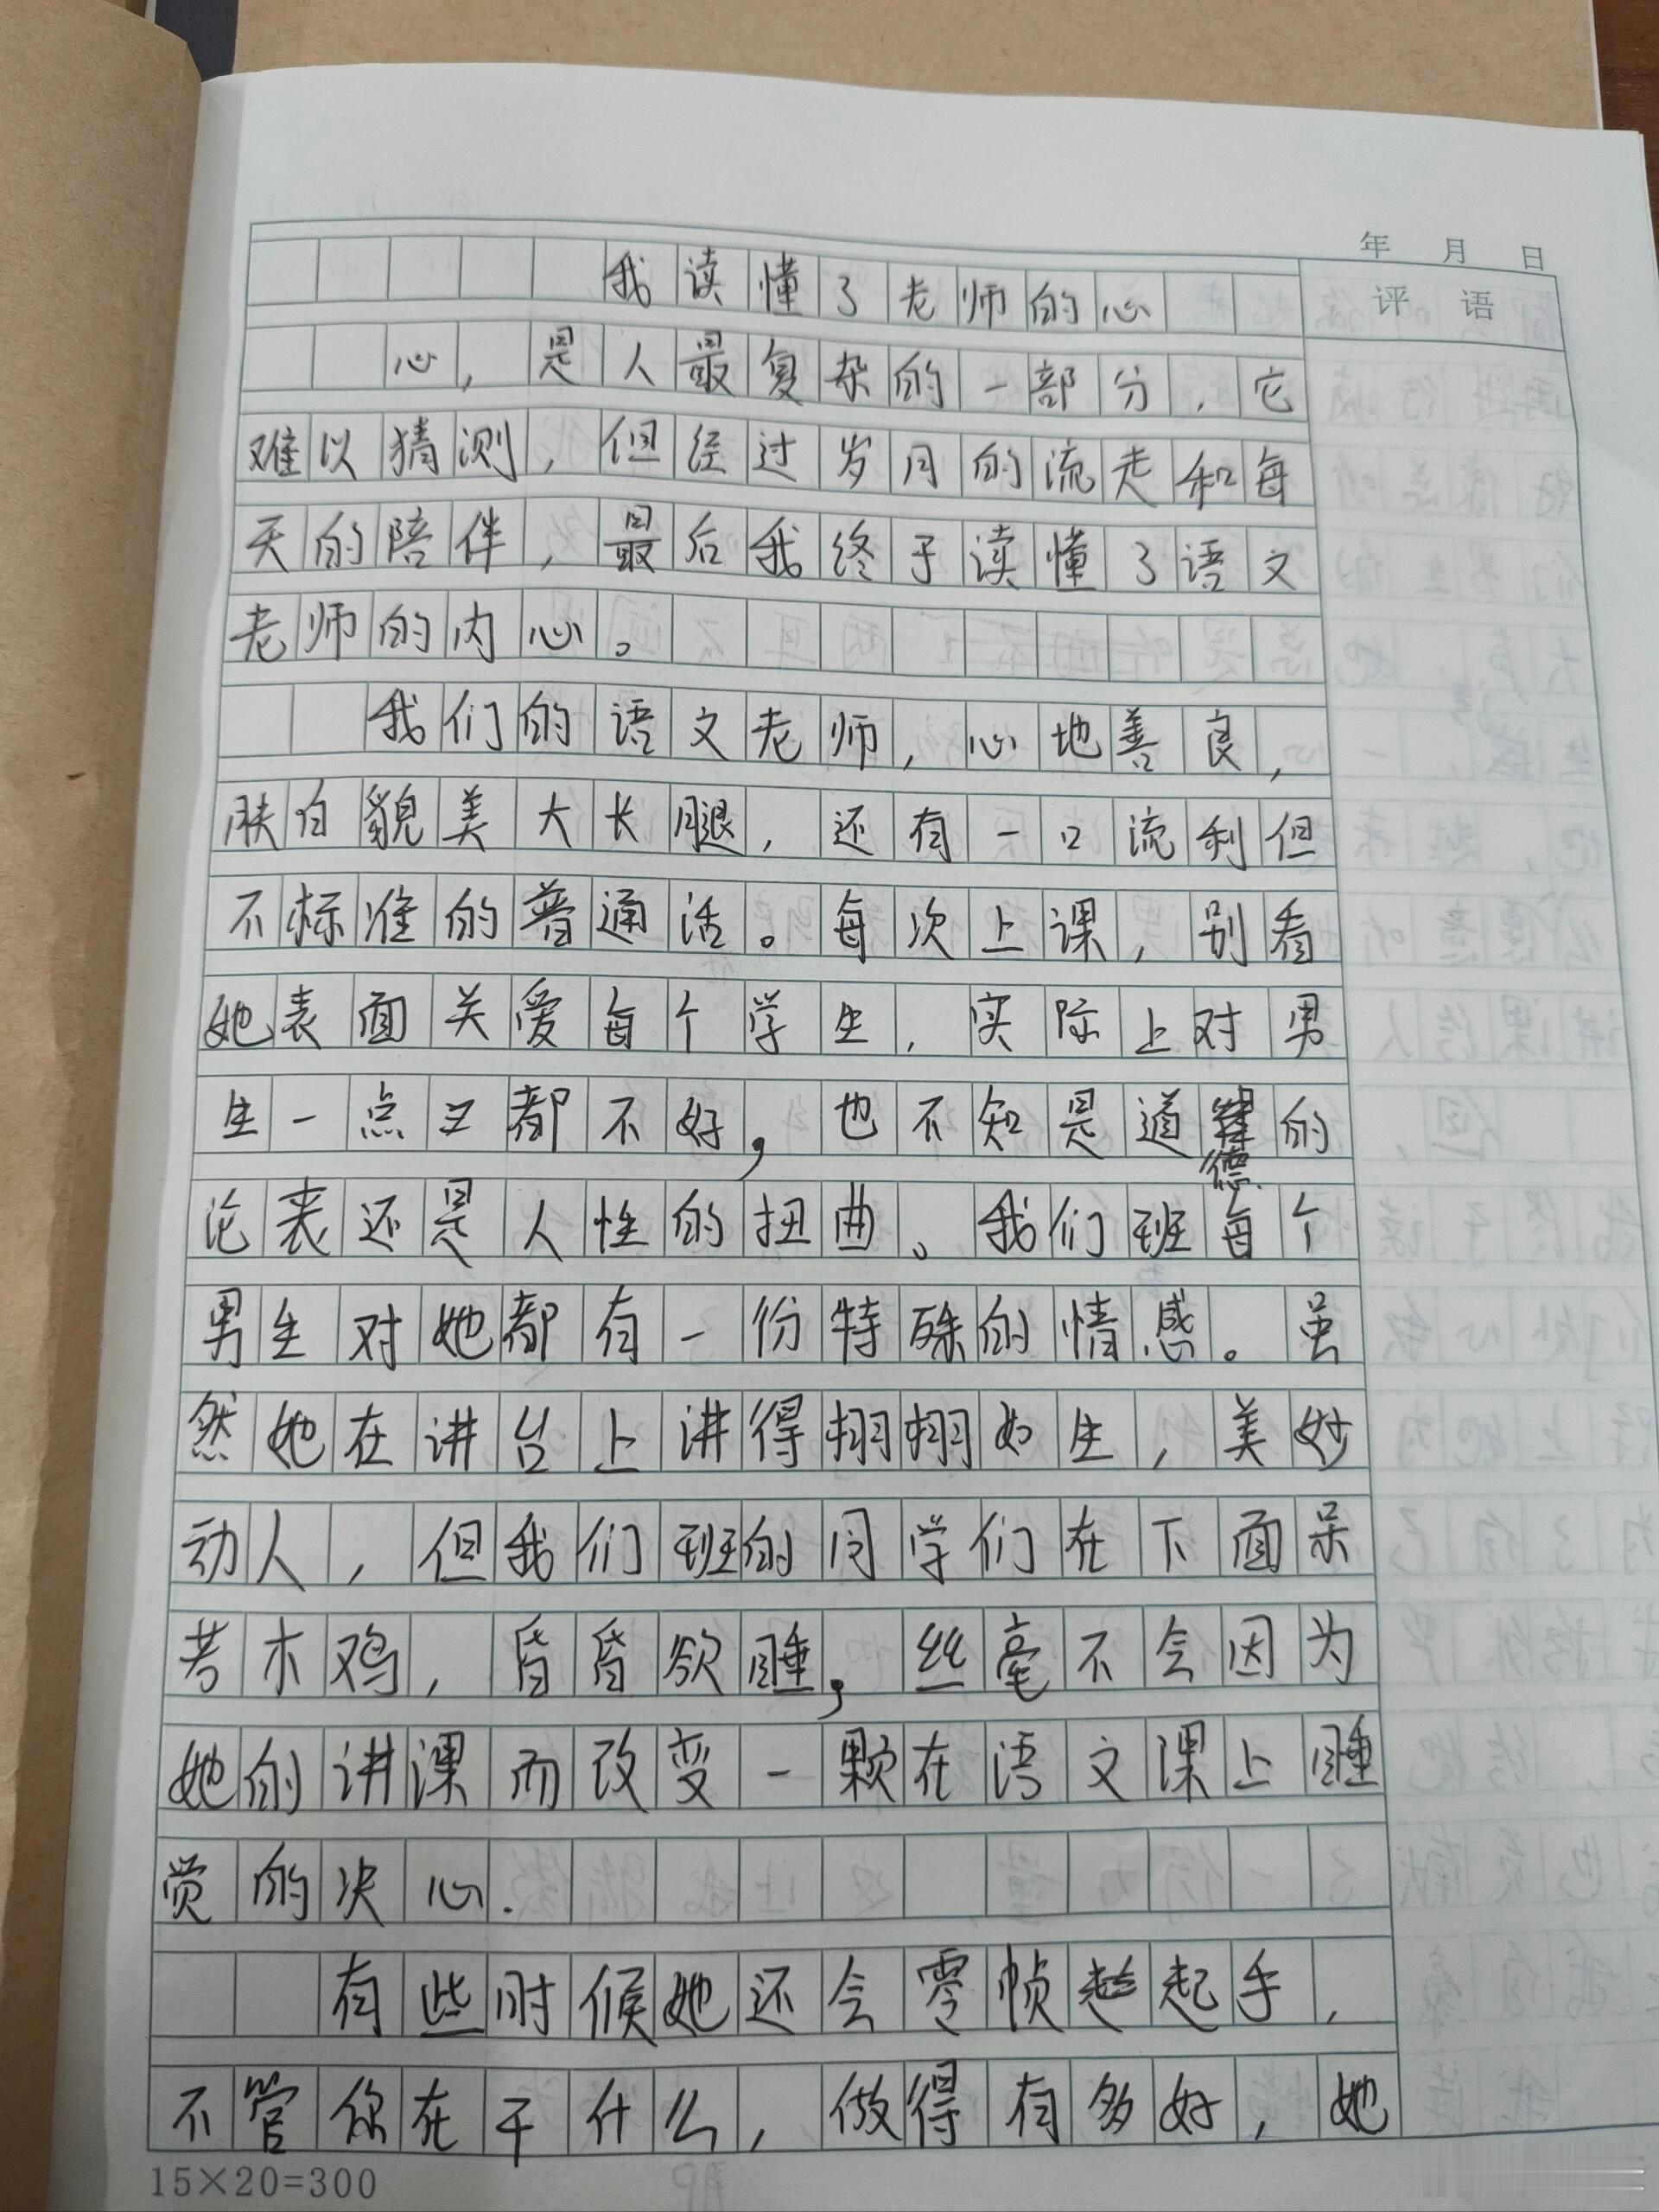 年 月 日
评 语
我读懂了老师的心
心，是人最复杂的一部分，它
难以猜测，但经过岁月的流走和每
天的陪伴，最后我终于读懂了语文
老师的内心。
我们的语文老师，心地善良，
肤白貌美大长腿，还有一口流利但
不标准的普通话。每次上课，别看
她表面关爱每个学生，实际上对男
生一点都不好，也不知是道德的
沦丧还是人性的扭曲。我们班每个
男生对她都有一份特殊的情感。虽
然她在讲台上讲得栩栩如生，美妙
动人，但我们班的同学们在下面呆
若木鸡，昏昏欲睡，丝毫不会因为
她的讲课而改变一颗在语文课上睡
觉的决心.
有些时候她还会零帧起手，
不管你在干什么，做得有多好，她
15×20=300